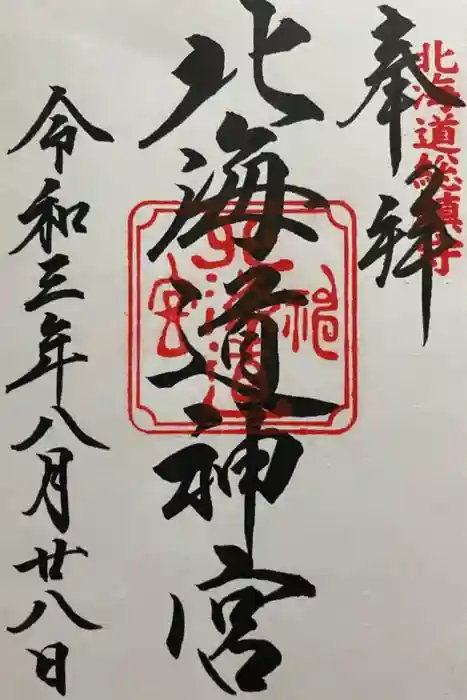 奉拝
北海道総鎮守
北海道神宮
北海道神宮
令和三年八月廿八日